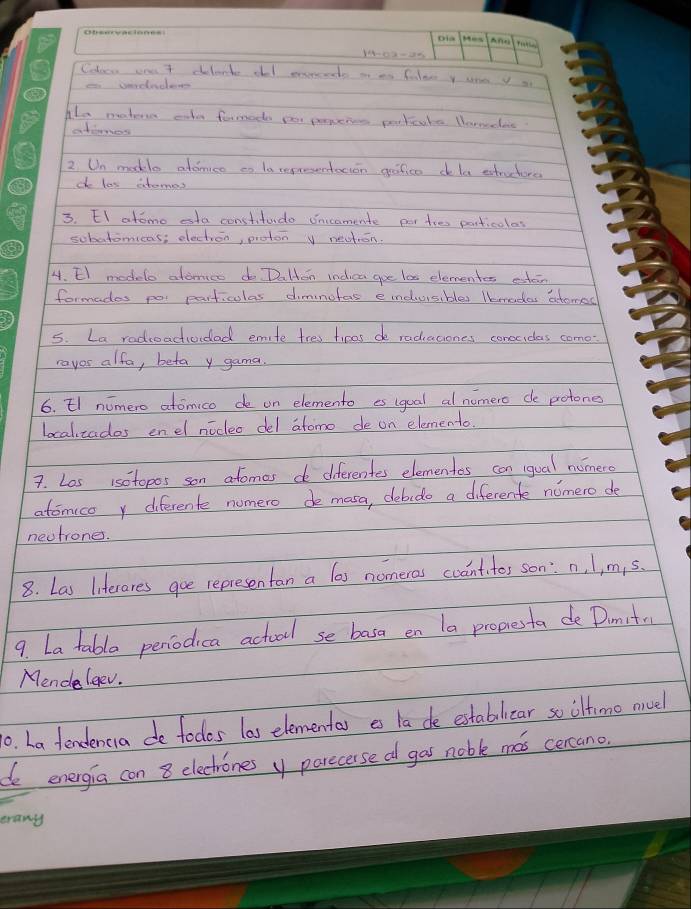 Observaciones:
Día Mes Año Folio
19-02-25
Coloca una F delante del enunciado si es falso y una V si
es verdadero
1. La materia esta formada por pequeñas particulas llamadas
atomos
2. Un modelo atómico es la representación gráfica de la estructura
de los átomos
3. El atómo esta constituido únicamente por tres particulas
subatómicas: electrón, protón y neutrón.
4. El modelo atómico de Daltón indica que los elementos están
formados por particulas diminutas e indivisibles llamadas átomos
5. La radioactividad emite tres tipos de radiaciones conocidas como:
rayos alfa, beta y gama.
6. El número atómico de un elemento es igual al número de protones
localizados en el núcleo del átomo de un elemento.
7. Los isótopos son atomos de diferentes elementos con igual número
atómico y diferente numero de masa, debido a diferente número de
neutrones.
8. Las literares que representan a los números cuántitos son: n, l, m, s.
9. La tabla periódica actual se basa en la propiesta de Dimitri
Mendeleev.
10. La tendencia de todos los elementos es la de estabilizar su último nivel
de energía con 8 electrónes y parecerse al gas noble más cercano.
erany